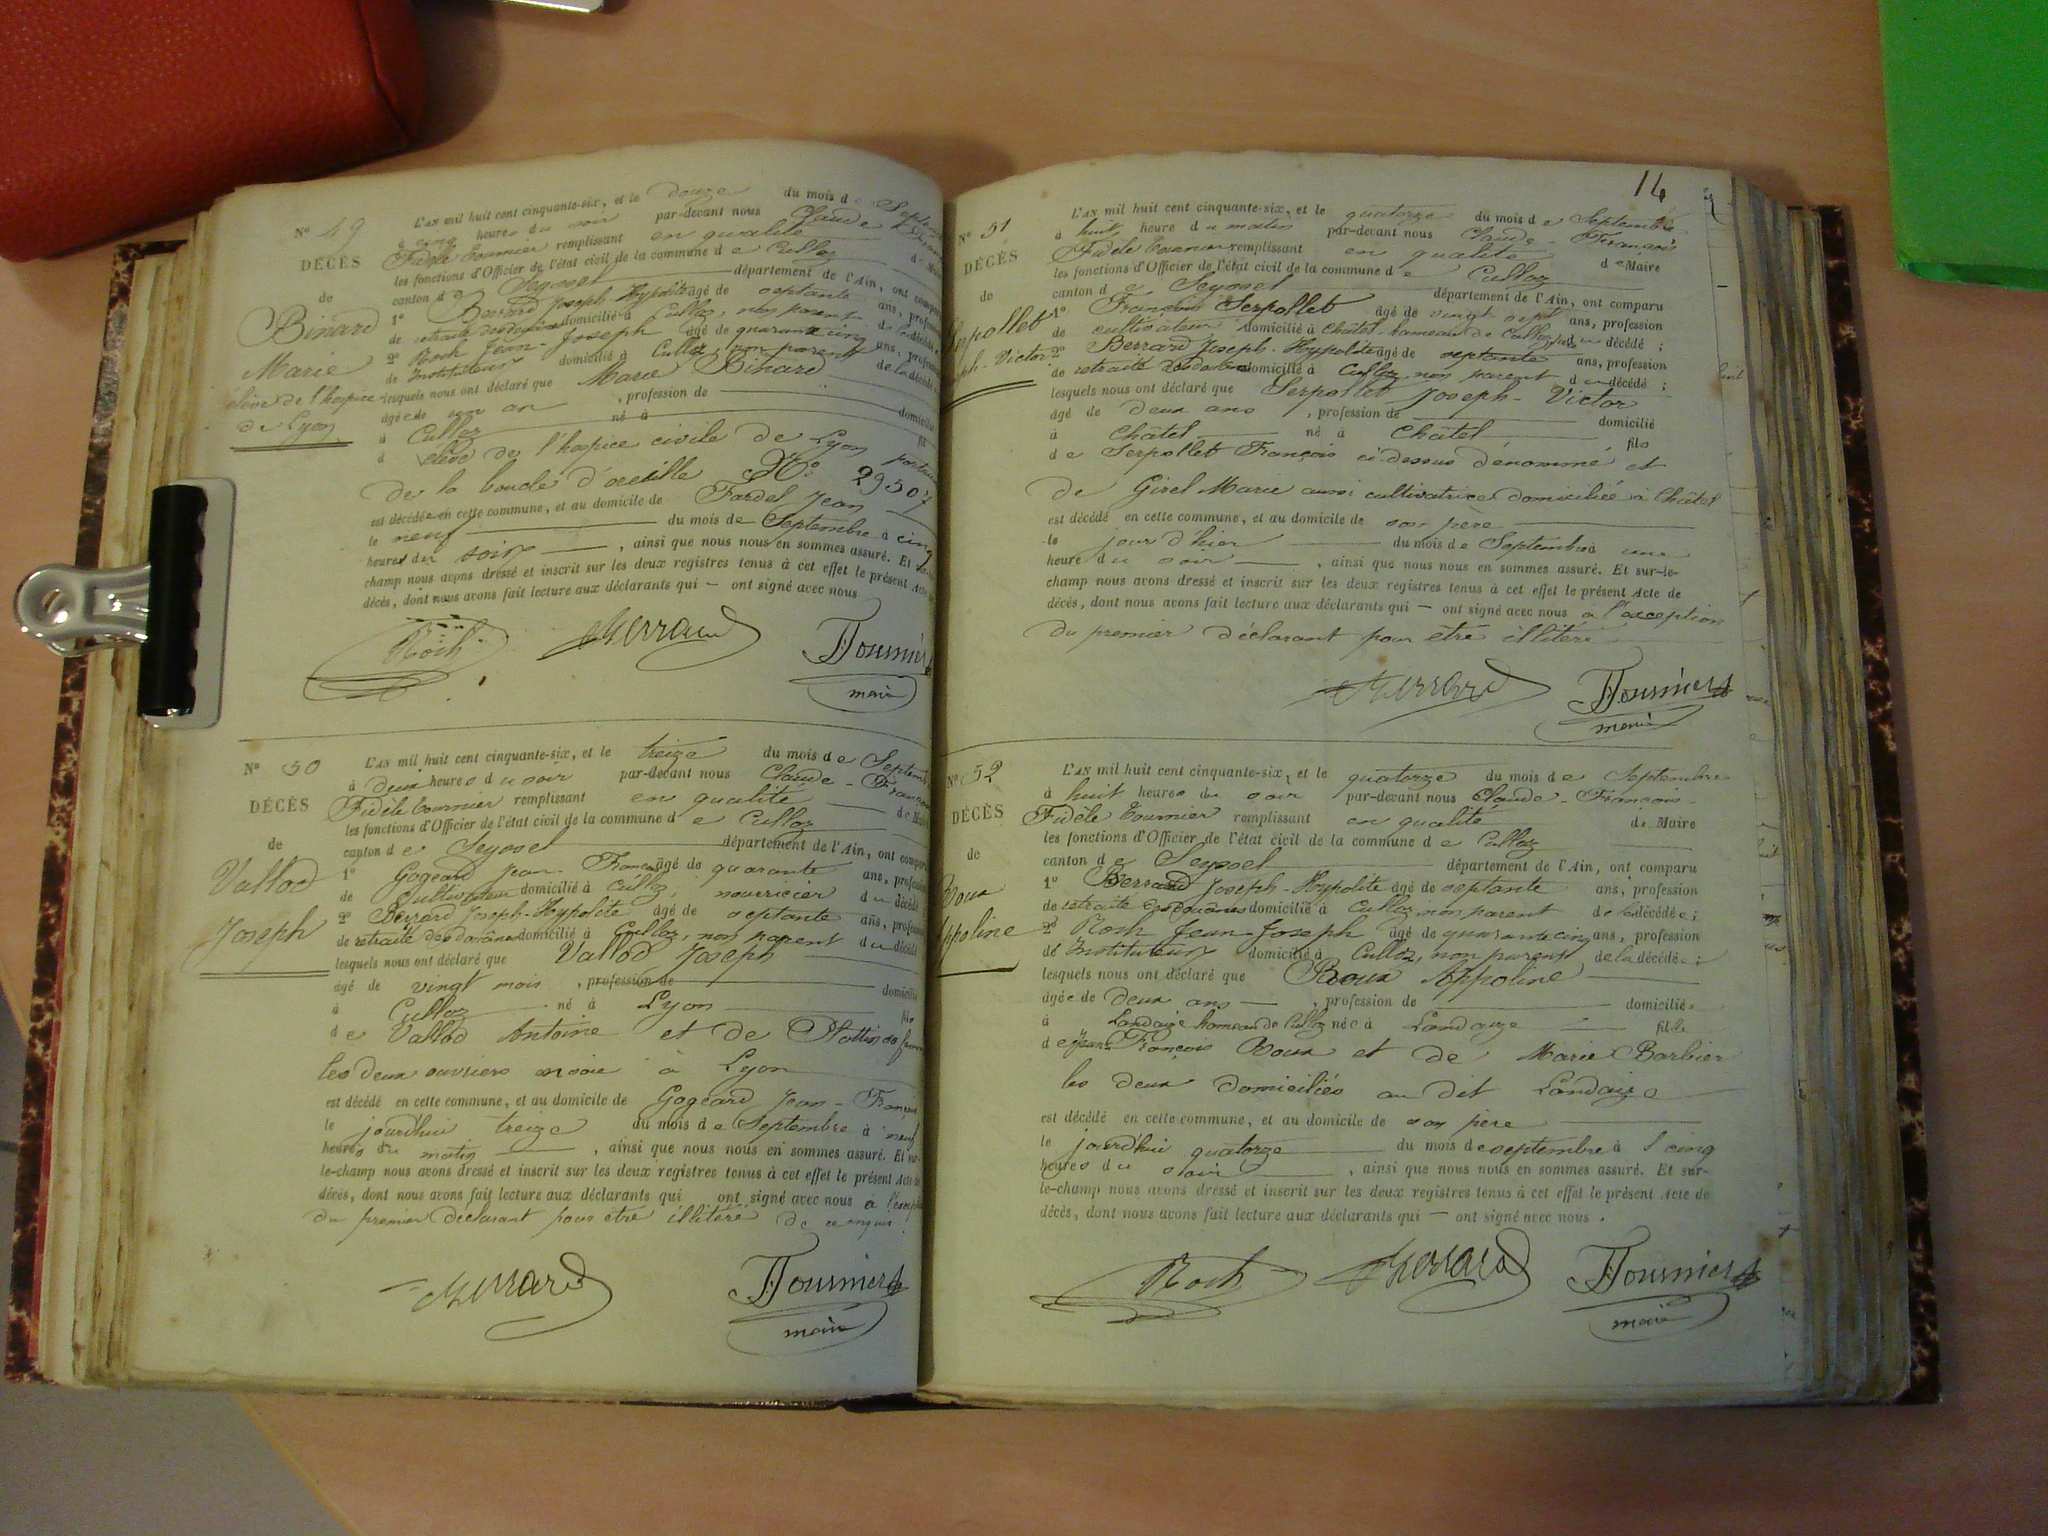 14
N° 49
DÉCÈS
de
Binard
Marie
élève de l'hospice
de Lyon
L'AN mil huit cent cinquante-six, et le douze du mois de
à cinq heures du soir par-devant nous Claude
Fidèle Tournier remplissant en qualité de
les fonctions d'Officier de l'état civil de la commune de Culloz
canton de Seyssel département de l'Ain, ont
1° Berrard Joseph-Hypolite âgé de septante ans,
de retraité des douanes domicilié à Culloz, non parent de la décédée
2° Roch Jean-Joseph âgé de quarante cinq ans,
de Instituteur domicilié à Culloz, non parent de la décédée
lesquels nous ont déclaré que Marie Binard
âgée de un an , profession de domicilié
à Culloz né à fil
d élève de l'hospice civile de Lyon
de la boucle d'oreille N° 29507
est décédée en cette commune, et au domicile de Fardel Jean
le neuf du mois de Septembre à cinq
heures du soir , ainsi que nous nous en sommes assuré. Et
champ nous avons dressé et inscrit sur les deux registres tenus à cet effet le présent Acte
décès, dont nous avons fait lecture aux déclarants qui — ont signé avec nous
Roch Berrard Tournier
maire
N° 50
DÉCÈS
de
Vallod
Joseph
L'AN mil huit cent cinquante-six, et le treize du mois de
à deux heures du soir par-devant nous Claude-
Fidèle Tournier remplissant en qualité de
les fonctions d'Officier de l'état civil de la commune de Culloz
canton de Seyssel département de l'Ain, ont
1° Gogeard Jean- âgé de quarante ans,
de Cultivateur domicilié à Culloz, nourricier du décédé
2° Berrard Joseph-Hypolite âgé de septante ans,
de retraité des douanes domicilié à Culloz, non parent du décédé
lesquels nous ont déclaré que Vallod Joseph
âgé de vingt mois , profession de domicilié
à Culloz né à Lyon fils
de Vallod Antoine et de
les deux ouvriers en soie à Lyon
est décédé en cette commune, et au domicile de Gogeard Jean-
le jourdhui treize du mois de Septembre à neuf
heures du matin , ainsi que nous nous en sommes assuré. Et sur-
le-champ nous avons dressé et inscrit sur les deux registres tenus à cet effet le présent Acte de
décès, dont nous avons fait lecture aux déclarants qui ont signé avec nous à
du premier déclarant pour être illitéré
Berrard Tournier
maire
N° 51
DÉCÈS
de
L'AN mil huit cent cinquante-six, et le quatorze du mois de Septembre
à huit heure du matin par-devant nous Claude-François
Fidèle Tournier remplissant en qualité de Maire
les fonctions d'Officier de l'état civil de la commune de Culloz
canton de Seyssel département de l'Ain, ont comparu
1° François Serpollet âgé de vingt sept ans, profession
de cultivateur domicilié à Châtel hameau de Culloz, du décédé ;
2° Berrard Joseph-Hypolite âgé de septante ans, profession
de retraité des douanes domicilié à Culloz, non parent du décédé ;
lesquels nous ont déclaré que Serpollet Joseph-Victor
âgé de deux ans , profession de domicilié
à Châtel né à Châtel fils
de Serpollet François ci-dessus dénommé et
de Girel Marie aussi cultivatrice domiciliée à Châtel
est décédé en cette commune, et au domicile de son père
le jour d'hier du mois de Septembre à une
heure du soir , ainsi que nous nous en sommes assuré. Et sur-le-
champ nous avons dressé et inscrit sur les deux registres tenus à cet effet le présent Acte de
décès, dont nous avons fait lecture aux déclarants qui — ont signé avec nous à l'exception
du premier déclarant pour être illitéré
Berrard Tournier
maire
N° 52
DÉCÈS
de
Roux
Appoline
L'AN mil huit cent cinquante-six, et le quatorze du mois de Septembre
à huit heures du soir par-devant nous Claude-François-
Fidèle Tournier remplissant en qualité de Maire
les fonctions d'Officier de l'état civil de la commune de Culloz
canton de Seyssel département de l'Ain, ont comparu
1° Berrard Joseph-Hypolite âgé de septante ans, profession
de retraité des douanes domicilié à Culloz non parent de la décédée ;
2° Roch Jean-Joseph âgé de quarante cinq ans, profession
de Instituteur domicilié à Culloz, non parent de la décédée ;
lesquels nous ont déclaré que Roux Appoline
âgée de deux ans , profession de domiciliée
à Landaize hameau de Culloz née à Landaize fille
de Jean François Roux et de Marie Barbier
les deux domiciliés au dit Landaize
est décédé en cette commune, et au domicile de son père
le jourdhui quatorze du mois de septembre à cinq
heures du soir , ainsi que nous nous en sommes assuré. Et sur-
le-champ nous avons dressé et inscrit sur les deux registres tenus à cet effet le présent Acte de
décès, dont nous avons fait lecture aux déclarants qui — ont signé avec nous .
Roch Berrard Tournier
maire